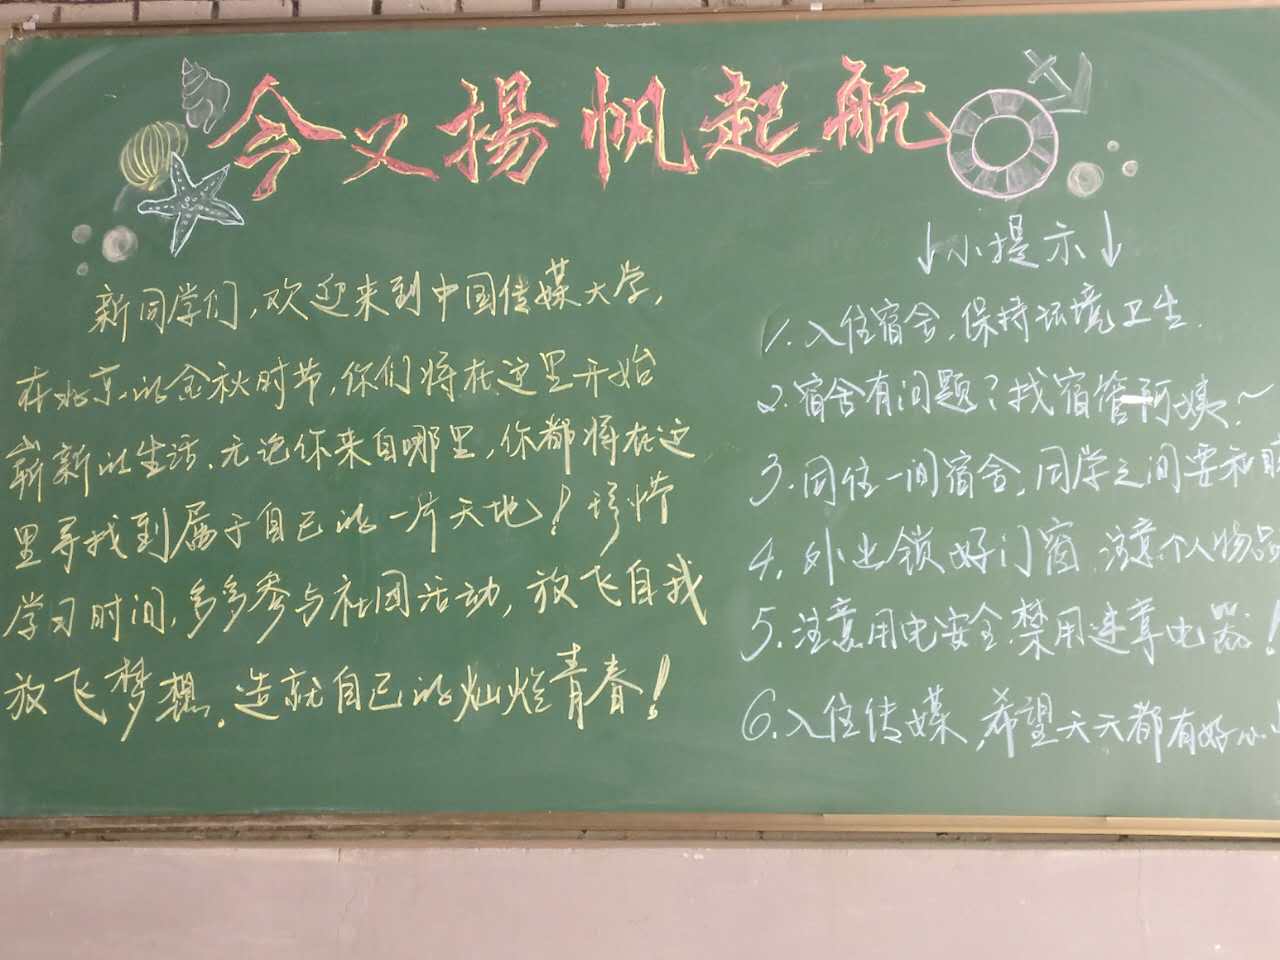 今又揚帆起航
新同学们,欢迎来到中国传媒大学,
在北京的金秋时节,你们将在这里开始
崭新的生活、无论你来自哪里,你都将在这
里寻找到属于自己的一片天地!珍惜
学习时间,多多参与社团活动,放飞自我
放飞梦想、造就自己的灿烂青春!
↓小提示↓
1.入住宿舍,保持环境卫生.
2.宿舍有问题?找宿管阿姨~
3.同住一间宿舍,同学之间要和
4.外出锁好门窗,注意个人物品
5.注意用电安全,禁用违章电器!
6.入住传媒,希望天天都有好心